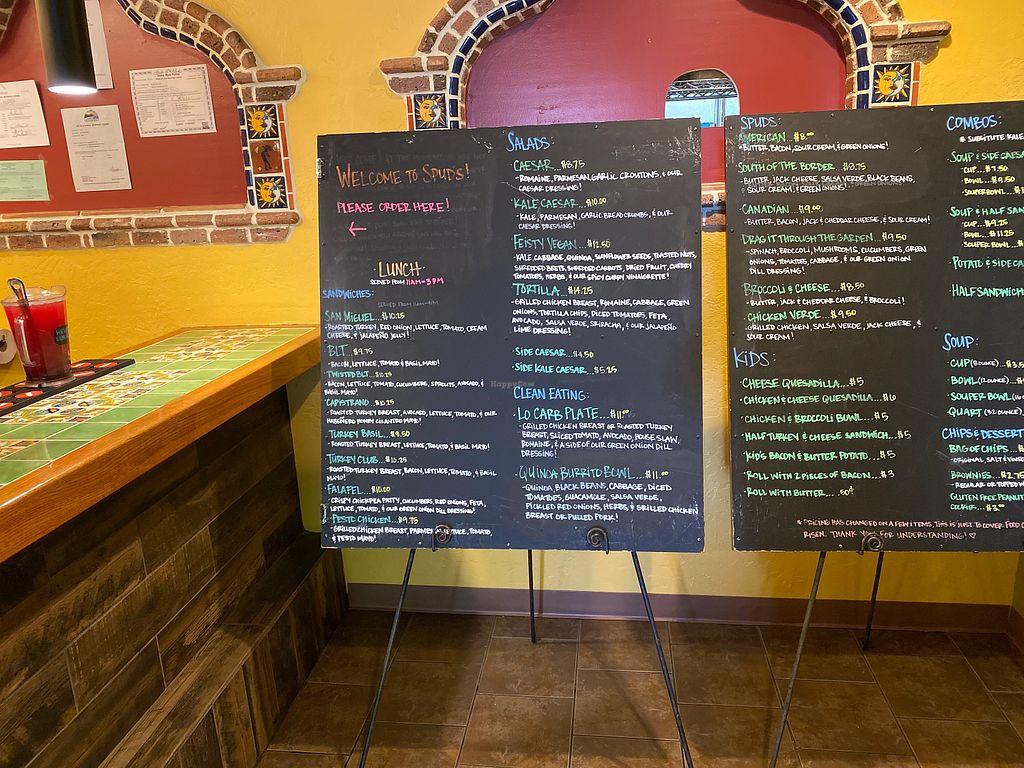 WELCOME TO SPUDS!
PLEASE ORDER HERE!
LUNCH
SERVED FROM 11AM-3PM
SANDWICHES:
SERVED FROM 11AM-4PM
SAN MIGUEL...$10.25
• ROASTED TURKEY, RED ONION, LETTUCE, TOMATO, CREAM
CHEESE, & JALAPEÑO JELLY!
BLT...$9.75
• BACON, LETTUCE, TOMATO & BASIL MAYO!
TWISTED BLT...$10.25
• BACON, LETTUCE, TOMATO, CUCUMBERS, SPROUTS, AVOCADO, &
BASIL MAYO!
CAPISTRANO...$10.25
• ROASTED TURKEY BREAST, AVOCADO, LETTUCE, TOMATO, & OUR
HABEÑERO HONEY CILANTRO MAYO!
TURKEY BASIL...$9.50
ROASTED TURKEY BREAST, LETTUCE, TOMATO, & BASIL MAYO!
TURKEY CLUB...$10.25
• ROASTED TURKEY BREAST, BACON, LETTUCE, TOMATO, & BASIL
MAYO!
FALAFEL...$10.00
• CRISPY CHICKPEA PATTY, CUCUMBERS, RED ONIONS, FETA,
LETTUCE, TOMATO, & OUR GREEN ONION DILL DRESSING!
PESTO CHICKEN...$9.75
• GRILLED CHICKEN BREAST, PARMESAN, LETTUCE, TOMATO,
& PESTO MAYO!
SALADS:
CAESAR...$8.75
• ROMAINE, PARMESAN, GARLIC CROUTONS, & OUR
CAESAR DRESSING!
KALE CAESAR...$10.00
• KALE, PARMESAN, GARLIC BREAD CRUMBS, & OUR
CAESAR DRESSING!
FEISTY VEGAN...$12.50
• KALE, CABBAGE, QUINOA, SUNFLOWER SEEDS, TOASTED NUTS,
SHREDDED BEETS, SHREDDED CARROTS, DRIED FRUIT, CHERRY
TOMATOES, HERBS, & OUR SPICY CURRY VINAIGRETTE!
TORTILLA...$14.25
• GRILLED CHICKEN BREAST, ROMAINE, CABBAGE, GREEN
ONIONS, TORTILLA CHIPS, DICED TOMATOES, FETA,
AVOCADO, SALSA VERDE, SRIRACHA, & OUR JALAPEÑO
LIME DRESSING!
SIDE CAESAR...$4.50
SIDE KALE CAESAR...$5.25
HappyCow
CLEAN EATING:
LO CARB PLATE...$11.00
• GRILLED CHICKEN BREAST OR ROASTED TURKEY
BREAST, SLICED TOMATO, AVOCADO, HOUSE SLAW,
ROMAINE, & A SIDE OF OUR GREEN ONION DILL
DRESSING!
QUINOA BURRITO BOWL...$11.00
• QUINOA, BLACK BEANS, CABBAGE, DICED
TOMATOES, GUACAMOLE, SALSA VERDE,
PICKLED RED ONIONS, HERBS, & GRILLED CHICKEN
BREAST OR PULLED PORK!
SPUDS:
AMERICAN...$8.00
• BUTTER, BACON, SOUR CREAM, & GREEN ONIONS!
SOUTH OF THE BORDER...$8.75
• BUTTER, JACK CHEESE, SALSA VERDE, BLACK BEANS,
SOUR CREAM, & GREEN ONIONS!
CANADIAN...$9.00
• BUTTER, BACON, JACK & CHEDDAR CHEESE, & SOUR CREAM!
DRAG IT THROUGH THE GARDEN...$9.50
• SPINACH, BROCCOLI, MUSHROOMS, CUCUMBERS, GREEN
ONIONS, TOMATOES, CABBAGE, & OUR GREEN ONION
DILL DRESSING!
BROCCOLI & CHEESE...$8.50
• BUTTER, JACK & CHEDDAR CHEESE, & BROCCOLI!
CHICKEN VERDE...$9.50
• GRILLED CHICKEN, SALSA VERDE, JACK CHEESE, &
SOUR CREAM!
KIDS:
• CHEESE QUESADILLA...$5
• CHICKEN & CHEESE QUESADILLA...$6
• CHICKEN & BROCCOLI BOWL...$5
• HALF TURKEY & CHEESE SANDWICH...$5
• KID'S BACON & BUTTER POTATO...$5
• ROLL WITH 2 PIECES OF BACON...$3
• ROLL WITH BUTTER....50¢
COMBOS:
* SUBSTITUTE KALE
SOUP & SIDE CAESA
• CUP...$7.50
• BOWL...$9.50
• SOUPERBOWL...
SOUP & HALF SAN
• CUP...$9.25
• BOWL...$11.25
• SOUPER BOWL...
POTATO & SIDE CA
HALF SANDWICH
SOUP:
CUP (8 OUNCE)...$3.5
BOWL (12 OUNCE)...
SOUPER BOWL
QUART (32 OUNCE)
CHIPS & DESSERT
BAG OF CHIPS...
• ORIGINAL, SALT & VINE
BROWNIES...2.75
• REGULAR OR TOPPED W
GLUTEN FREE PEANUT
COOKIES...$3.00
* PRICING HAS CHANGED ON A FEW ITEMS, THIS IS JUST TO COVER FOOD C
RISEN. THANK YOU FOR UNDERSTANDING! ♡